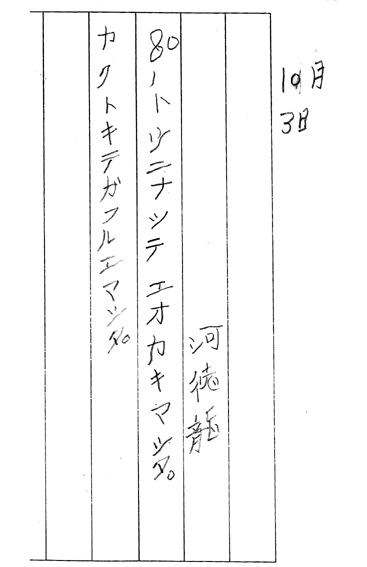 10月
3日
河徳龍
80ノトシニナツテ エオカキマシタ。
カクトキテガフルエマシタ。